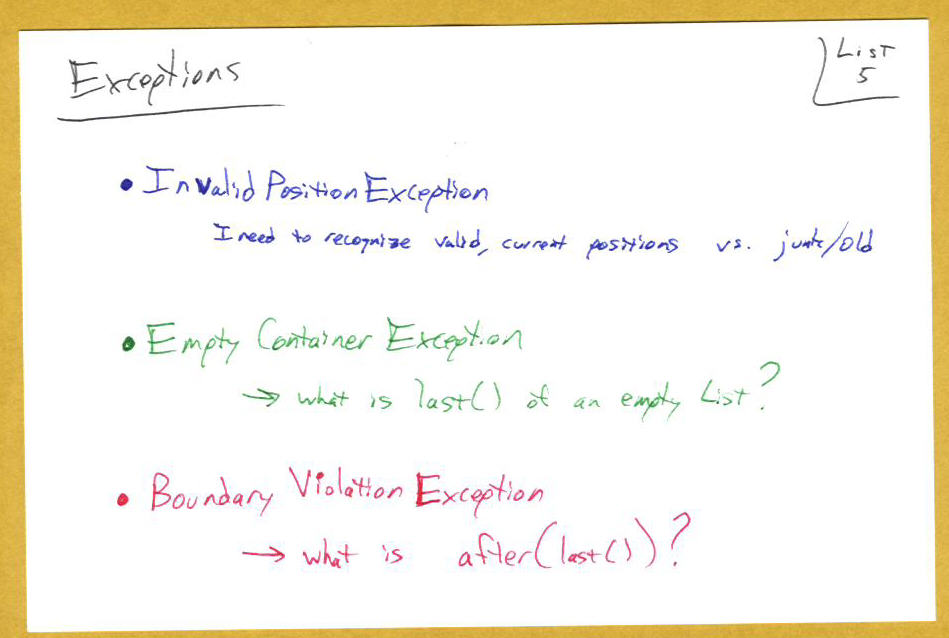 Exceptions
List
5
• Invalid Position Exception
I need to recognize valid, current positions vs. junk/old
• Empty Container Exception
→ what is last() of an empty List?
• Boundary Violation Exception
→ what is after(last())?